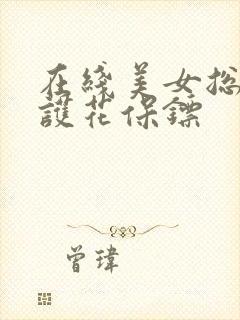 在綫美女総
護花保鏢
曾瑋